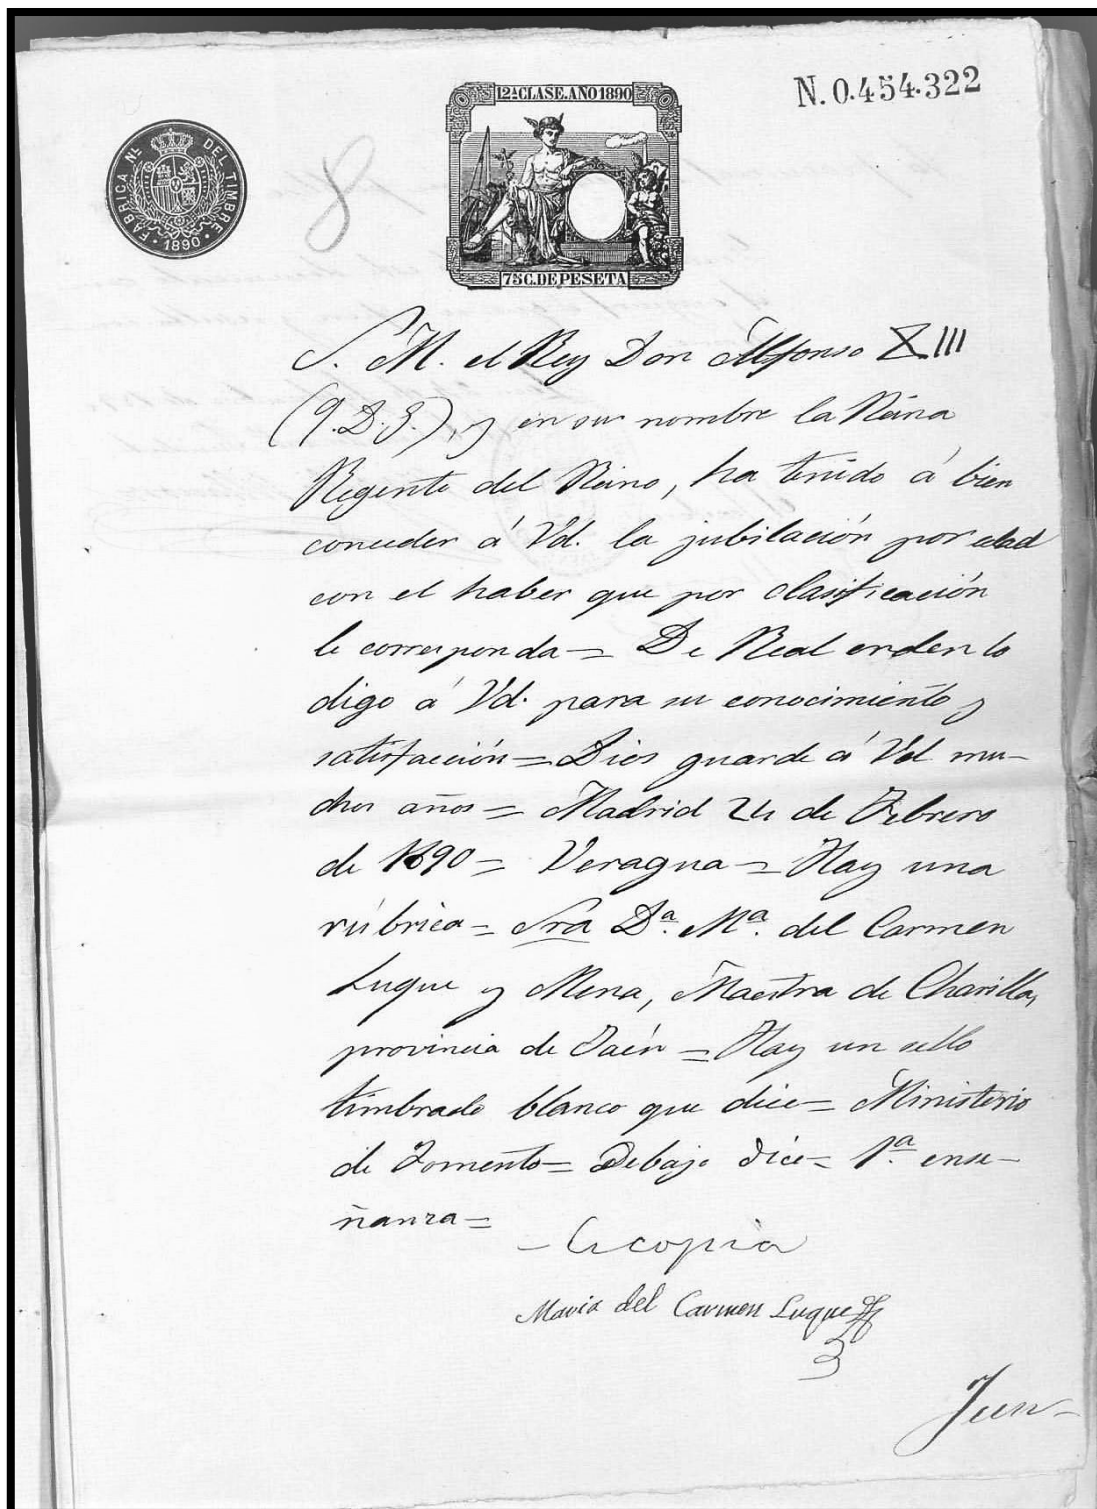 N. 0.454.322
12ª CLASE. AÑO 1890
FÁBRICA Nˡ DEL TIMBRE · 1890 ·
8
75 C. DE PESETA
S. M. el Rey Don Alfonso XIII
(q. D. g.), y en su nombre la Reina
Regente del Reino, ha tenido á bien
conceder á Vd. la jubilación por edad
con el haber que por clasificación
le corresponda = De Real orden lo
digo á Vd. para su conocimiento y
satisfacción = Dios guarde á Vd mu-
chos años = Madrid 24 de Febrero
de 1890 = Veragua = Hay una
rúbrica = Sra Dª. Mª. del Carmen
Luque y Mena, Maestra de Charilla,
provincia de Jaén = Hay un sello
timbrado blanco que dice = Ministerio
de Fomento = Debajo dice = 1ª. ense-
ñanza =
Es copia
Maria del Carmen Luque
Jun-